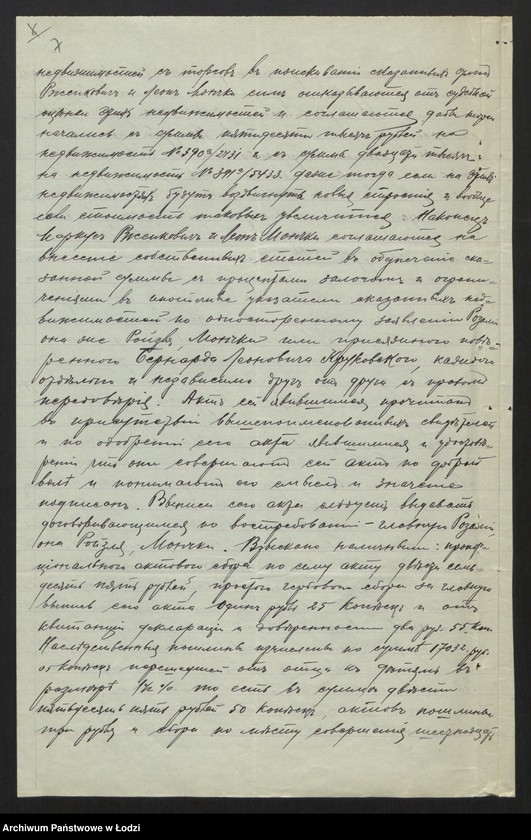 недвижимостей съ торговъ въ поискиваніи сказанныхъ
Рысенковичъ и Леонъ Мончки симъ отказываются отъ
недвижимостей и соглашаются дабы
начались съ суммы пятидесяти тысячъ рублей на
недвижимость № 390ᵃ/2431 и съ суммы двадцати тысячъ
на недвижимость даже тогда если на
недвижимостяхъ будутъ воздвигнуты новыя строенія и вообще
если стоимость таковыхъ увеличится. Наконецъ
Маркусъ Рысенковичъ и Леонъ Мончки соглашаются на
внесеніе собственныхъ статей въ обезпеченіе ска-
занной суммы съ процентами залоговъ и ограни-
ченіями въ ипотечные указатели сказанныхъ нед-
вижимостей по одностороннему заявленію Розаліи
она же Ройзля, Мончки или присяжнаго повѣ-
реннаго Бернарда Леоновича Круковскаго, каждаго
отдѣльно и независимо другъ отъ друга съ правомъ
передовѣрія. Актъ сей явившимся прочитанъ
въ присутствіи вышепоименованныхъ свидѣтелей
и по одобреніи сего акта явившимися и удостовѣ-
реніи что они совершаютъ сей актъ по доброй
волѣ и понимаютъ его смыслъ и значеніе
подписанъ. Выписи сего акта слѣдуетъ выдавать
договаривающимся по востребованію - главную Розаліи,
она Ройзля, Мончки. Взыскано наличными: пропор-
ціональнаго актоваго сбора по сему акту двѣсти семь-
десятъ пять рублей, простого гербоваго сбора за главную
выпись сего акта одинъ рубль 25 копѣекъ и отъ
квитанціи деклараціи и довѣренности два руб. 55 коп.
Наслѣдственныя пошлины исчислены по суммѣ 17032 руб.
05 копѣекъ перешедшей отъ отца къ дѣтямъ въ
размѣрѣ 1½ % то есть въ суммѣ двѣсти
пятьдесятъ пять рублей 50 копѣекъ, актовъ пошлины
три рубля и сбора по мѣсту совершенія шестнадцать
Archiwum Państwowe w Łodzi